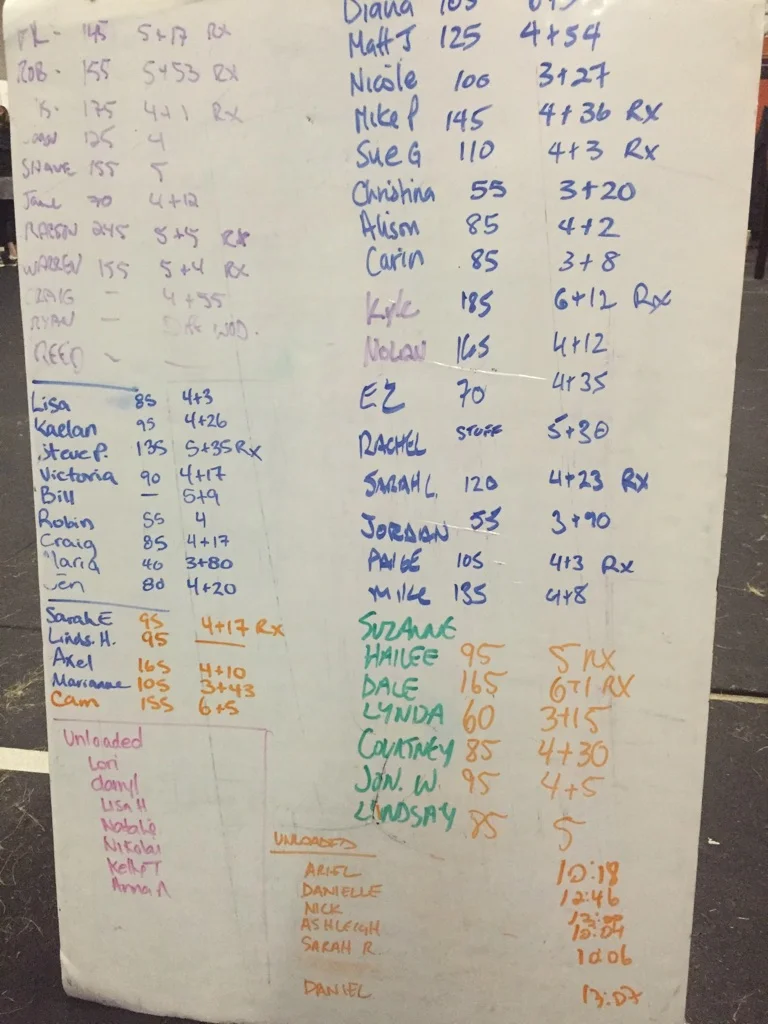 145 5+17 Rx
ROB - 155 5+53 RX
175 4+1 Rx
125 4
SHAVE 155 5
70 4+12
245 5+5 RX
WARREN 155 5+4 RX
CRAIG — 4+55
RYAN — WOD.
REED -
Lisa 85 4+3
Kaelan 95 4+26
Steve P. 135 5+35 RX
Victoria 90 4+17
Bill — 5+9
Robin 55 4
Craig 85 4+17
Maria 40 3+80
Jen 80 4+20
Sarah E 95 4+17 Rx
Linds. H. 95 —
Axel 165 4+10
Marianne 105 3+43
Cam 155 6+5
Unloaded
Lori
darryl
Lisa H
Natalie
Nikolai
Kelly T
Anna A
Diana 105
Matt J 125 4+54
Nicole 100 3+27
Mike P 145 4+36 Rx
Sue G 110 4+3 Rx
Christina 55 3+20
Alison 85 4+2
Carin 85 3+8
Kyle 185 6+12 Rx
NOLAN 165 4+12
EZ 70 4+35
RACHEL STUFF 5+30
SARAH L. 120 4+23 RX
JORDAN 55 3+90
PAIGE 105 4+3 Rx
Mike 135 4+8
SUZANNE
HAILEE 95 5 RX
DALE 165 6+1 RX
LYNDA 60 3+15
COURTNEY 85 4+30
JON. W. 95 4+5
LINDSAY 85 5
UNLOADED
ARIEL 10:18
DANIELLE 12:46
NICK
ASHLEIGH
SARAH R. 10:06
DANIEL 13:07